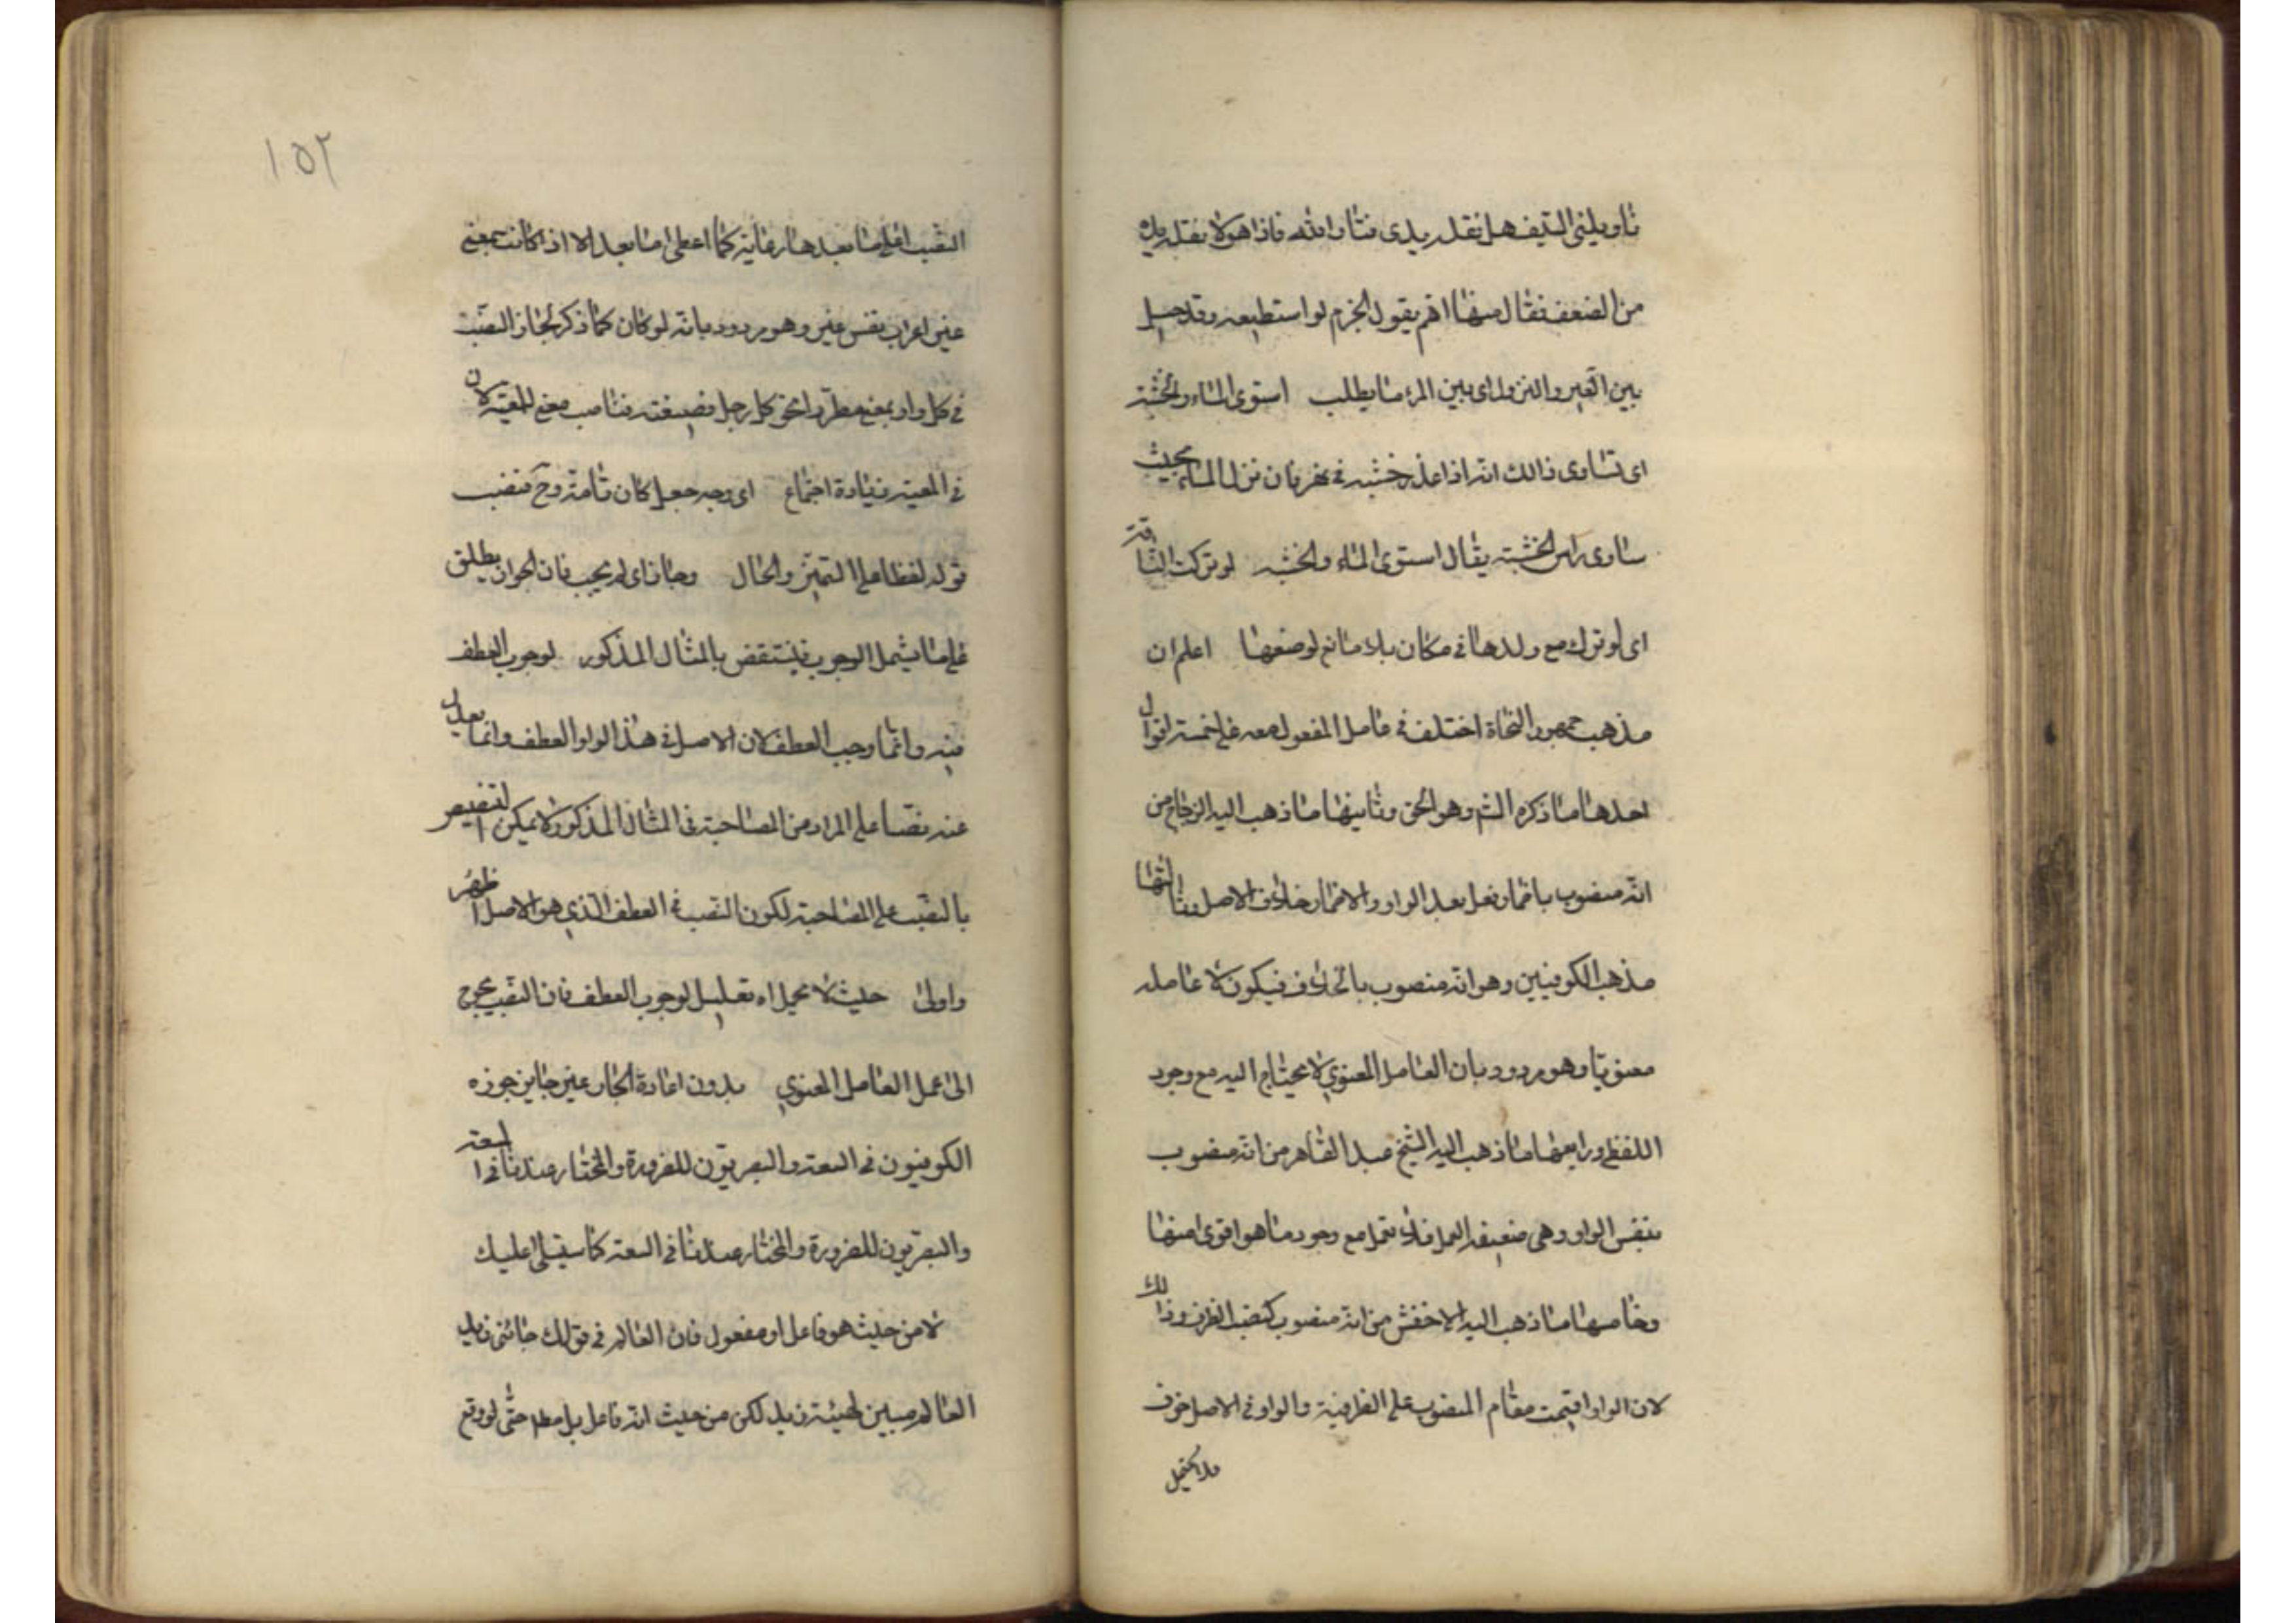 ناوليني السيف هل نقلد يدي فناوانله فاذا هو لا يقلد يده
من الضعف فقال منها اهم يقول الجزم لو استطيعه وقد حيل
بين العير والنزوان اي بين المرء ما يطلب استوى الماء والخشبة
اي تساوى ذالك انه اذا غذ خشبه في نهر فان نزل الماء بحيث
ساوى راس الخشبته يقال استوى الماء والخشبه لو تركت الناقة
اي لو ترك مع ولدها في مكان بلا مانع لوضعها اعلم ان
مذهب جمهور النحاة اختلف في عامل المفعول معه على خمسة اقوال
احدها ما ذكره الشم وهو الحق وثانيها ما ذهب اليه الزجاج من
انه منصوب باضمار فعل بعد الواو والاضمار خلاف الاصل وثالثها
مذهب الكوفيين وهو انه منصوب بالخلاف فيكون لا عامله
معنويا وهو مردود بان العامل المعنوي لا يحتاج اليه مع وجود
اللفظي ورابعها ما ذهب اليه الشيخ عبد القاهر من انه منصوب
بنفس الواو وهي ضعيفه العمل فلا تعمل مع وجود ما هو اقوى منها
وخامسها ما ذهب اليه الاخفش من انه منصوب كنصب الظرف وذالك
لان الواو اقيمت مقام المنصوب على الظرفية والواو في الاصل حرف
فلا يحتمل
١٥٢
النصب اعلى ما بعدها رعاية كما اعطى ما بعد الا اذا كانت بمعنى
غير اعراب نفس غير وهو مردود بانه لو كان كما ذكر لجاز النصب
في كل واو بمعنى مع مطردا نحو كل رجل وضيعته فناصب معنى المعية لان
في المعية زيادة اجتماع اي وجه جعل كان تامة وح فنصب
قوله لفظا على التميز والحال وجاز اي لم يجب فان الجواز يطلق
على ما يشمل الوجوب فينتقض بالمثال المذكور لوجوب العطف
فيه وانما وجب العطف لان الاصل في هذا الواو العطف وانما يعدل
عنه نصا على المراد من المصاحبة في المثال المذكور لا يمكن التنصيص
بالنصب على المصاحبة لكون النصب في العطف الذي هو الاصل اظهر
واولى حيث لا يحمل اه تعليل لوجوب العطف فان النصب يحوج
الى عمل العامل المعنوي بدون اعادة الجار غير جايز جوزه
الكوفيون في السعة والبصريون للضرورة والمختار عندنا في السعة
والبصريون للضرورة والمختار عندنا في السعة كما سيتلى عليك
لا من حيث هو فاعل او مفعول فان العالم في قولك جائني زيد
العالم مبين لهيئة زيد لكن من حيث انه فاعل بل مطلقا حتى لو وقع